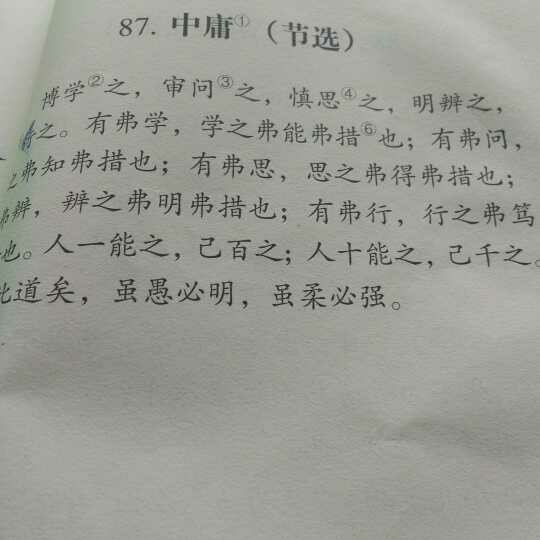 87. 中庸①（节选）
博学②之，审问③之，慎思④之，明辨之，
之。有弗学，学之弗能弗措⑥也；有弗问，
之弗知弗措也；有弗思，思之弗得弗措也；
弗辨，辨之弗明弗措也；有弗行，行之弗笃
也。人一能之，己百之；人十能之，己千之。
此道矣，虽愚必明，虽柔必强。